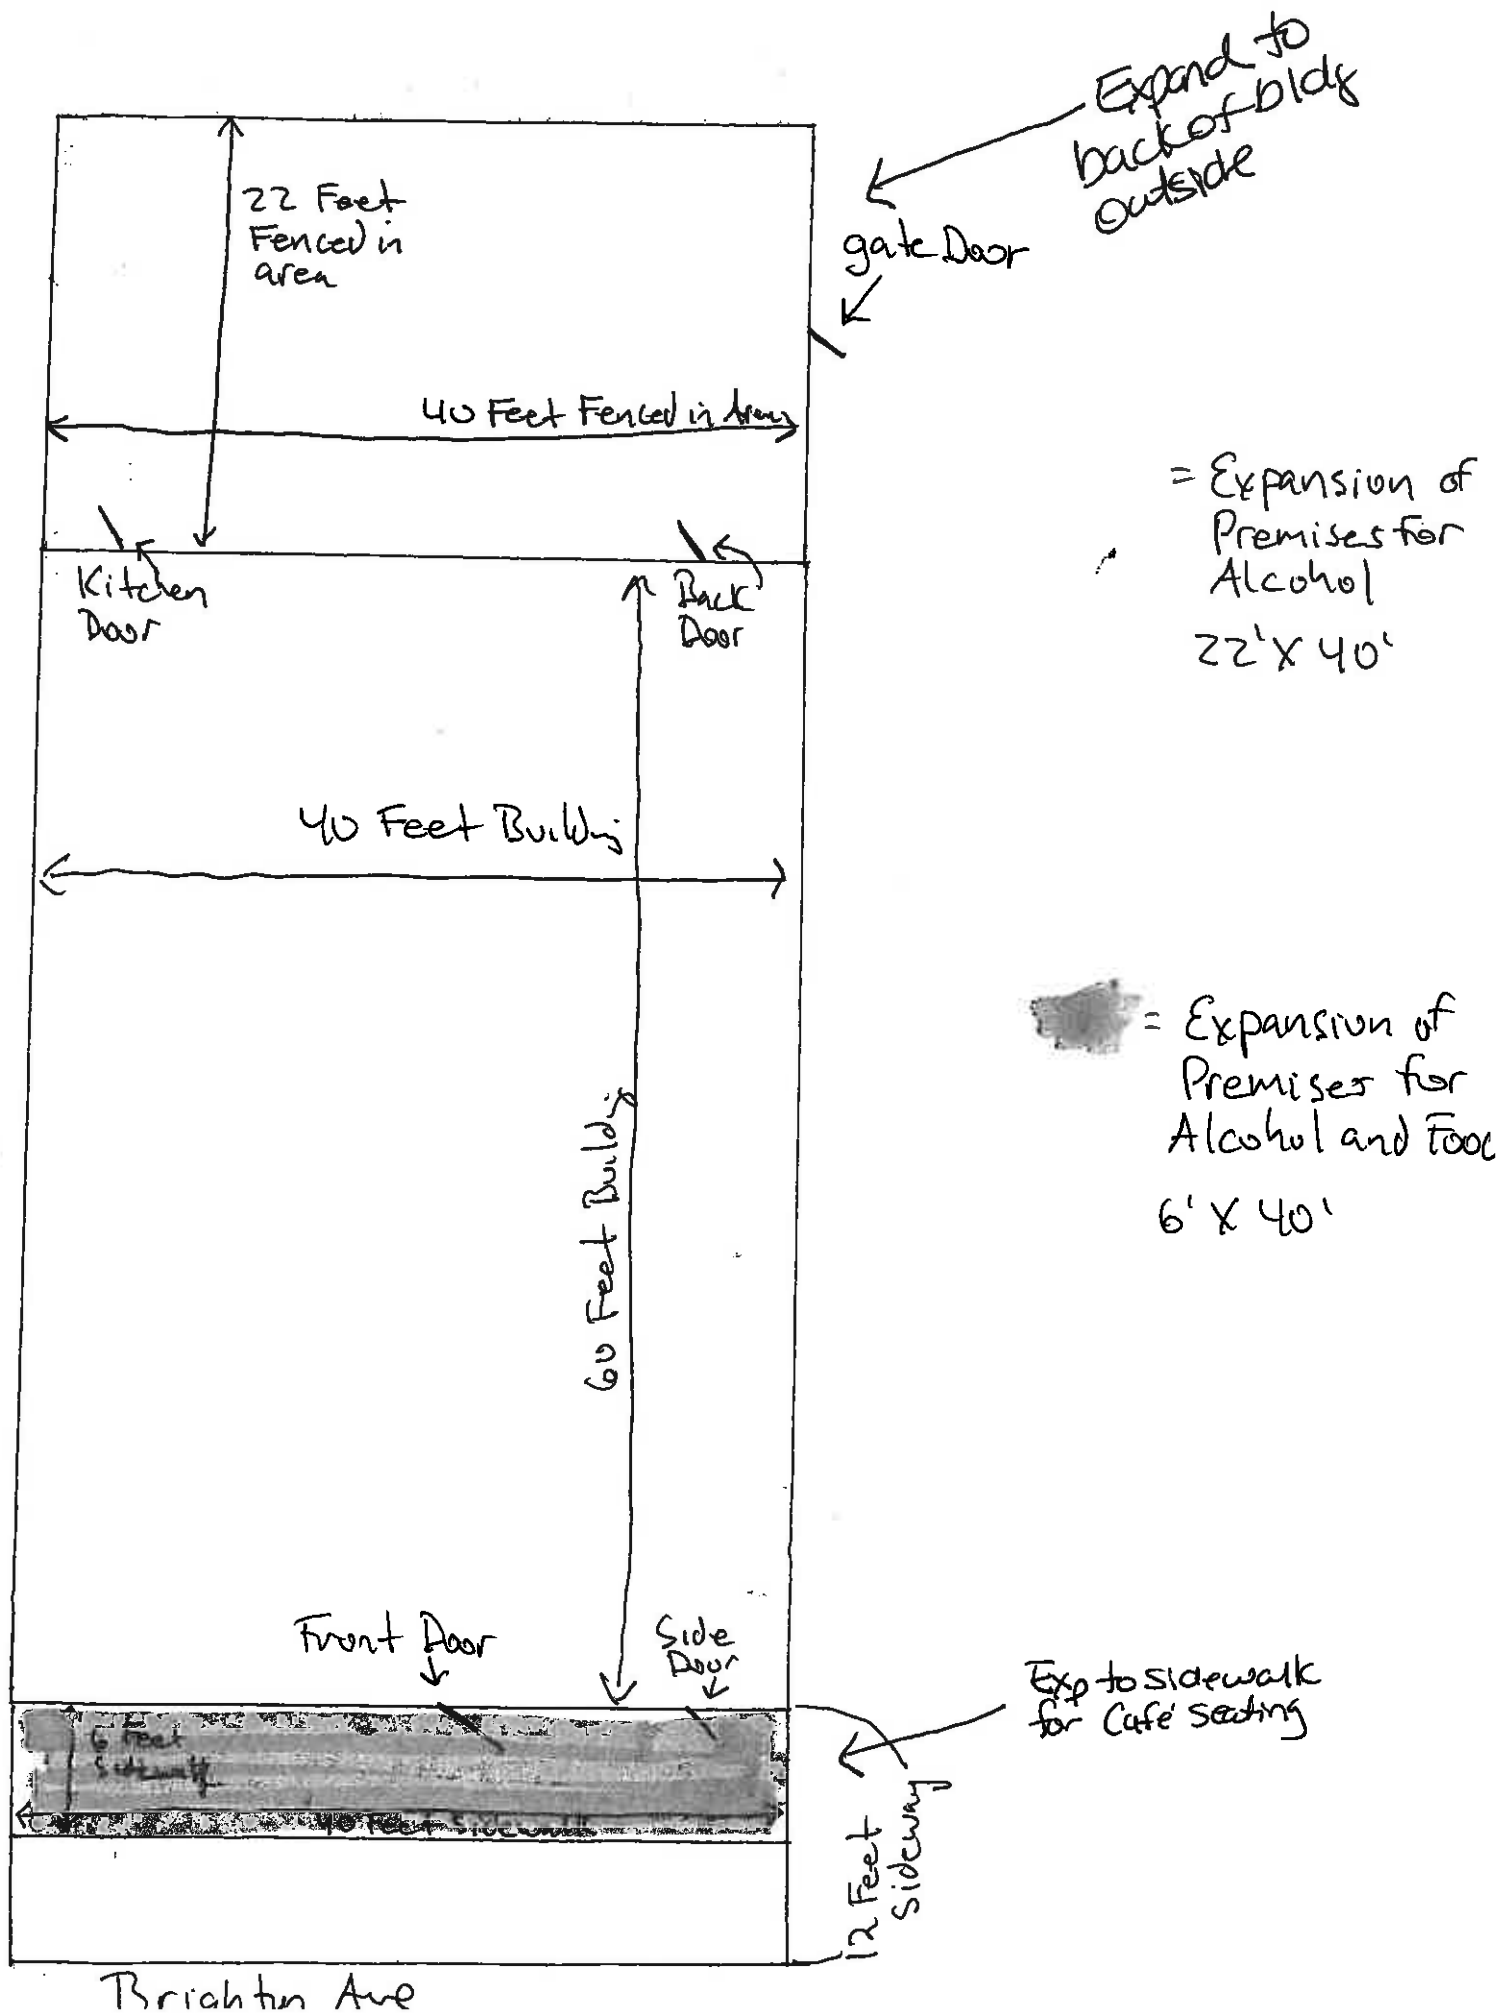 Expand to
back of bldg
outside
22 Feet
Fenced in
area
gate Door
40 Feet Fenced in Area
= Expansion of
Premises for
Alcohol
22' X 40'
Kitchen
Door
Back
Door
40 Feet Building
= Expansion of
Premises for
Alcohol and Food
6' X 40'
60 Feet Building
Front Door
Side
Door
Exp to sidewalk
for Café seating
6 Feet
Sidewalk
40 Feet Sidewalk
12 Feet
Sideway
Brighton Ave